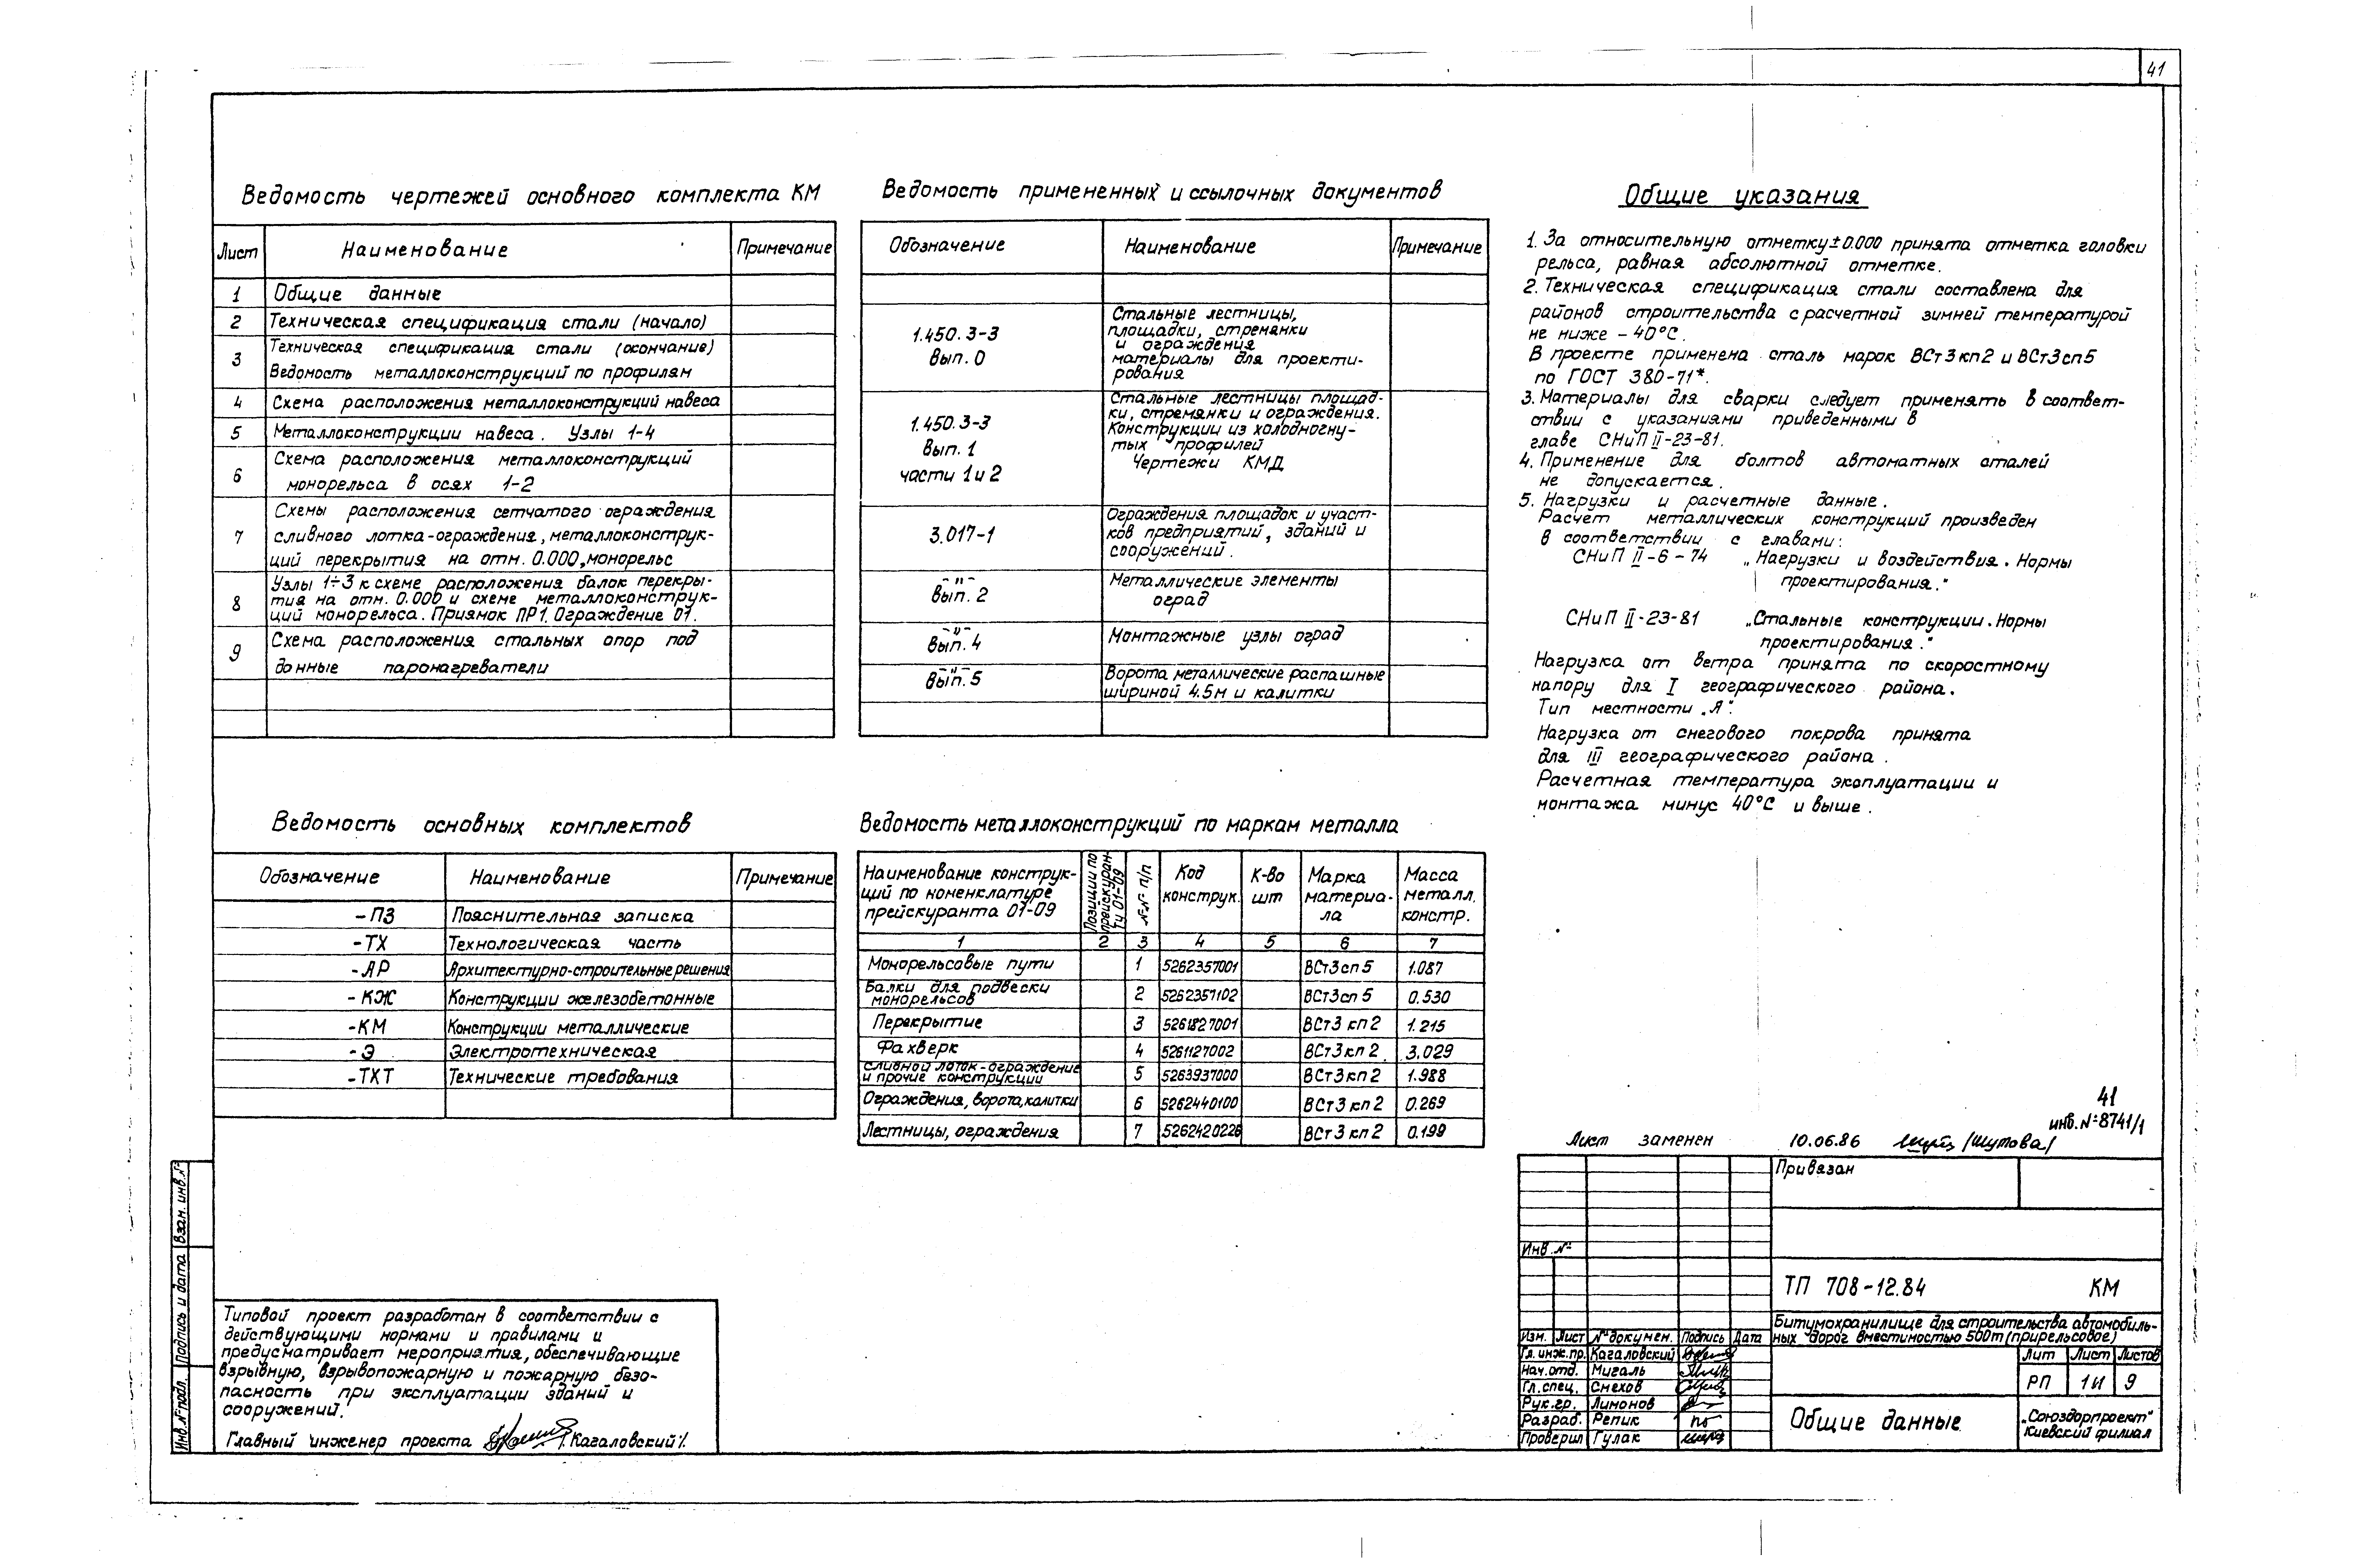 41
Ведомость чертежей основного комплекта КМ
Лист Наименование Примечание
1 Общие данные
2 Техническая спецификация стали (начало)
3 Техническая спецификация стали (окончание)
Ведомость металлоконструкций по профилям
4 Схема расположения металлоконструкций навеса
5 Металлоконструкции навеса. Узлы 1-4
6 Схема расположения металлоконструкций
монорельса в осях 1-2
7 Схемы расположения сетчатого ограждения
сливного лотка-ограждения, металлоконструк-
ций перекрытия на отм. 0.000, монорельс
8 Узлы 1÷3 к схеме расположения балок перекры-
тия на отм. 0.000 и схеме металлоконструк-
ций монорельса. Приямок ПР1. Ограждение О1.
9 Схема расположения стальных опор под
данные паронагреватели
Ведомость примененных и ссылочных документов
Обозначение Наименование Примечание
1.450.3-3
Вып. 0
Стальные лестницы,
площадки, стремянки
и ограждения
материалы для проекти-
рования
1.450.3-3
Вып. 1
части 1 и 2
Стальные лестницы площад-
ки, стремянки и ограждения.
Конструкции из холодногну-
тых профилей
Чертежи КМД
3.017-1
Ограждения площадок и участ-
ков предприятий, зданий и
сооружений.
-"-
Вып. 2
Металлические элементы
оград
-"-
Вып. 4
Монтажные узлы оград
-"-
Вып. 5
Ворота металлические распашные
шириной 4.5м и калитки
Общие указания
1. За относительную отметку ±0.000 принята отметка головки
рельса, равная абсолютной отметке.
2. Техническая спецификация стали составлена для
районов строительства с расчетной зимней температурой
не ниже -40°С.
В проекте применена сталь марок ВСт3кп2 и ВСт3сп5
по ГОСТ 380-71*.
3. Материалы для сварки следует применять в соответ-
ствии с указаниями приведенными в
главе СНиП II-23-81.
4. Применение для болтов автоматных сталей
не допускается.
5. Нагрузки и расчетные данные.
Расчет металлических конструкций произведен
в соответствии с главами:
СНиП II-6-74 „Нагрузки и воздействия. Нормы
проектирования."
СНиП II-23-81 „Стальные конструкции. Нормы
проектирования."
Нагрузка от ветра принята по скоростному
напору для I географического района.
Тип местности „А".
Нагрузка от снегового покрова принята
для III географического района.
Расчетная температура эксплуатации и
монтажа минус 40°С и выше.
Ведомость основных комплектов
Обозначение Наименование Примечание
-ПЗ Пояснительная записка
-ТХ Технологическая часть
-АР Архитектурно-строительные решения
-КЖ Конструкции железобетонные
-КМ Конструкции металлические
-Э Электротехническая
-ТХТ Технические требования
Ведомость металлоконструкций по маркам металла
Наименование конструк-
ций по номенклатуре
прейскуранта 01-09
Позиции по
прейскуран-
ту 01-09
№№ п/п
Код
конструк.
К-во
шт
Марка
материа-
ла
Масса
металл.
констр.
1 2 3 4 5 6 7
Монорельсовые пути 1 5262357001 ВСт3сп5 1.087
Балки для подвески
монорельсов 2 5262357102 ВСт3сп5 0.530
Перекрытие 3 5261827001 ВСт3кп2 1.215
Фахверк 4 5261127002 ВСт3кп2 3.029
Сливной лоток-ограждение
и прочие конструкции 5 5263937000 ВСт3кп2 1.988
Ограждения, ворота, калитки 6 5262440100 ВСт3кп2 0.269
Лестницы, ограждения 7 5262420226 ВСт3кп2 0.199
41
инв. №8741/1
Лист заменен 10.06.86 /Шутова/
Привязан
Инв. №
ТП 708-12.84 КМ
Битумохранилище для строительства автомобиль-
ных дорог вместимостью 500т (прирельсовое)
Изм. Лист № докумен. Подпись Дата
Гл. инж. пр. Кагаловский
Нач. отд. Мигаль
Гл. спец. Снехов
Рук. гр. Лимонов
Разраб. Репик
Проверил Гулак
Лит Лист Листов
РП 1И 9
Общие данные
„Союздорпроект"
Киевский филиал
Типовой проект разработан в соответствии с
действующими нормами и правилами и
предусматривает мероприятия, обеспечивающие
взрывную, взрывопожарную и пожарную безо-
пасность при эксплуатации зданий и
сооружений.
Главный инженер проекта /Кагаловский/.
Взам. инв. №
Подпись и дата
Инв. № подл.